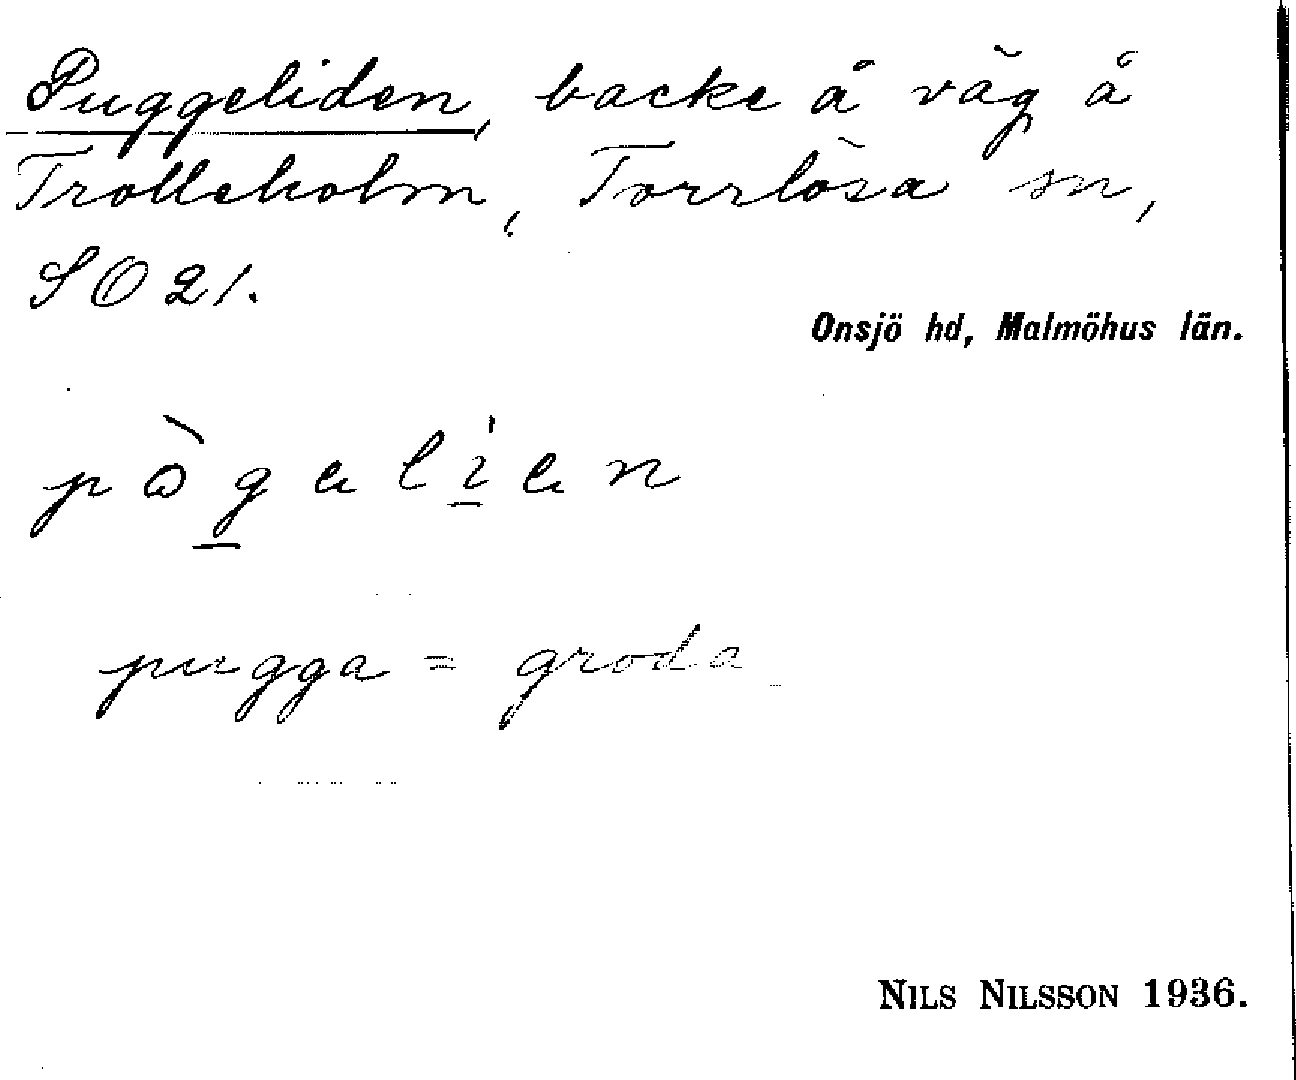 Puggeliden, backe å väg å
Trolleholm, Torrlösa sn,
SO 21.
Onsjö hd, Malmöhus län.
pògelíen
pugga = groda
NILS NILSSON 1936.